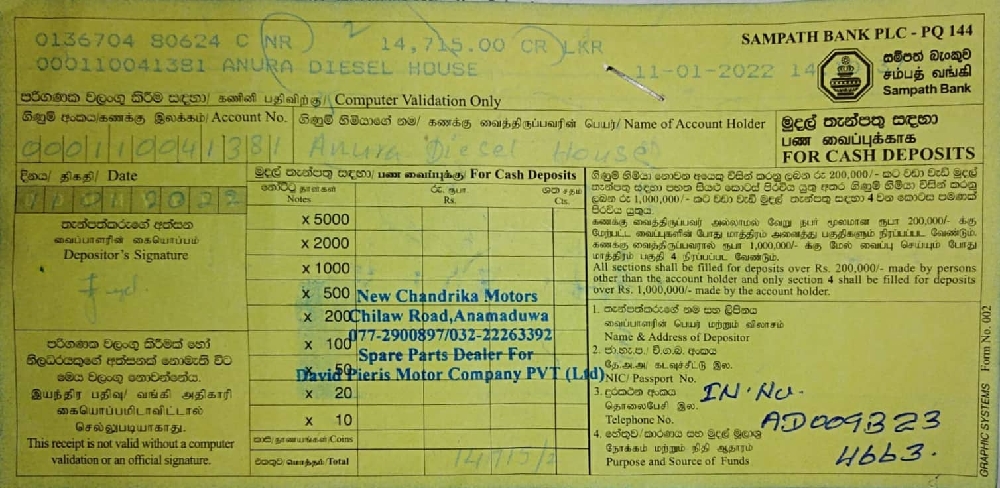 0136704 80624 C NR 2 14,715.00 CR LKR
000110041381 ANURA DIESEL HOUSE 11-01-2022 14
SAMPATH BANK PLC - PQ 144
සම්පත් බැංකුව
சம்பத் வங்கி
Sampath Bank
පරිගණක වලංගු කිරීම සඳහා/ கணினி பதிவிற்கு/ Computer Validation Only
ගිණුම් අංකය/கணக்கு இலக்கம்/ Account No.
000110041381
ගිණුම් හිමියාගේ නම/ கணக்கு வைத்திருப்பவரின் பெயர்/ Name of Account Holder
Anura Diesel House
මුදල් තැන්පතු සඳහා
பண வைப்புக்காக
FOR CASH DEPOSITS
දිනය/ திகதி/ Date
11012022
තැන්පත්කරුගේ අත්සන
வைப்பாளரின் கையொப்பம்
Depositor's Signature
පරිගණක වලංගු කිරීමක් හෝ
නිලධරයකුගේ අත්සනක් නොමැති විට
මෙය වලංගු නොවන්නේය.
இயந்திர பதிவு/ வங்கி அதிகாரி
கையொப்பமிடாவிட்டால்
செல்லுபடியாகாது.
This receipt is not valid without a computer
validation or an official signature.
මුදල් තැන්පතු සඳහා/ பண வைப்புக்கு/ For Cash Deposits
නෝට්ටු தாள்கள் රු. ரூபா ශත சதம்
Notes Rs. Cts.
x 5000
x 2000
x 1000
x 500
x 200
x 100
x 50
x 20
x 10
කාසි/நாணயங்கள்/Coins
එකතුව/மொத்தம்/Total 14715/2
New Chandrika Motors
Chilaw Road,Anamaduwa
077-2900897/032-22263392
Spare Parts Dealer For
David Pieris Motor Company PVT (Ltd)
ගිණුම් හිමියා නොවන අයෙකු විසින් කරනු ලබන රු 200,000/- කට වඩා වැඩි මුදල්
තැන්පතු සඳහා පහත සියළු කොටස් පිරවිය යුතු අතර ගිණුම් හිමියා විසින් කරනු
ලබන රු 1,000,000/- කට වඩා වැඩි මුදල් තැන්පතු සඳහා 4 වන කොටස පමණක්
පිරවිය යුතුය.
கணக்கு வைத்திருப்பவர் அல்லாமல் வேறு நபர் மூலமான ரூபா 200,000/- க்கு
மேற்பட்ட வைப்புகளின் போது மாத்திரம் அனைத்து பகுதிகளும் நிரப்பப்பட வேண்டும்.
கணக்கு வைத்திருப்பவரால் ரூபா 1,000,000/- க்கு மேல் வைப்பு செய்யும் போது
மாத்திரம் பகுதி 4 நிரப்பப்பட வேண்டும்.
All sections shall be filled for deposits over Rs. 200,000/- made by persons
other than the account holder and only section 4 shall be filled for deposits
over Rs. 1,000,000/- made by the account holder.
1. තැන්පත්කරුගේ නම සහ ලිපිනය
வைப்பாளரின் பெயர் மற்றும் விலாசம்
Name & Address of Depositor
2. ජා.හැ.ප./ වි.ග.බ. අංකය
தே.அ.அ/ கடவுச்சீட்டு இல.
NIC/ Passport No.
3. දුරකථන අංකය
தொலைபேசி இல.
Telephone No.
4. හේතුව/කාරණය සහ මුදල් මූලාශ්‍ර
நோக்கம் மற்றும் நிதி ஆதாரம்
Purpose and Source of Funds
IN.No.
AD009B23
4663.
GRAPHIC SYSTEMS Form No. 002